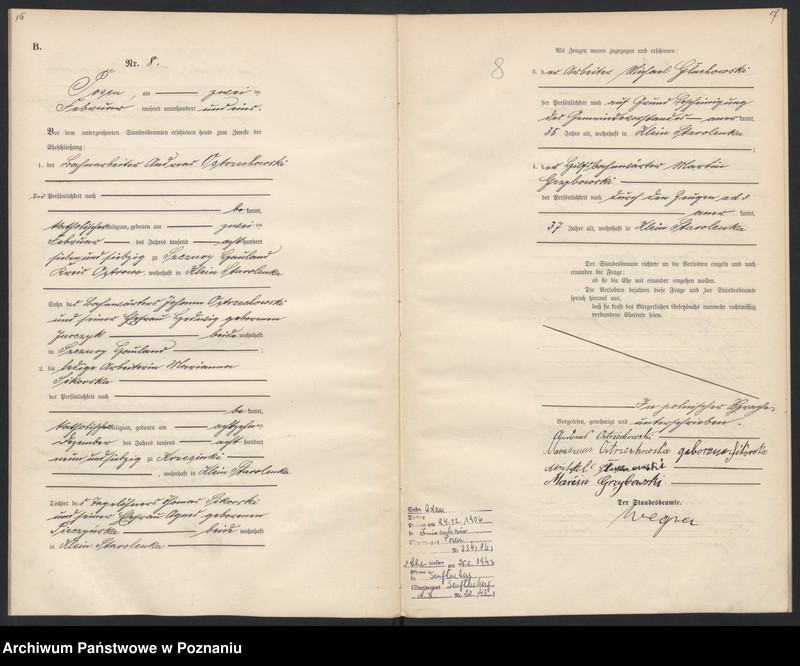 16
B.
Nr. 8.
Posen, am zwei ten
Februar tausend neunhundert und eins.
Vor dem unterzeichneten Standesbeamten erschienen heute zum Zwecke der
Eheschließung:
1. der Bahnarbeiter Andreas Ostrzechowski
der Persönlichkeit nach
be kannt,
katholischer Religion, geboren am zwei ten
Februar des Jahres tausend acht hundert
sieben und siebzig zu Szczury Hauland
Kreis Ostrowo, wohnhaft in Klein Starolenka
Sohn des Bahnwärters Johann Ostrzechowski
und seiner Ehefrau Hedwig geborenen
Jurczyk beide wohnhaft
in Szczury Hauland ;
2. die ledige Arbeiterin Marianna
Sikorska
der Persönlichkeit nach
be kannt,
katholischer Religion, geboren am achtzehn ten
Dezember des Jahres tausend acht hundert
neun und siebzig zu
, wohnhaft in Klein Starolenka
Tochter des Tagelöhners Thomas Sikorski
und seiner Ehefrau Agnes geborenen
beide wohnhaft
in Klein Starolenka
7
8
Als Zeugen waren zugezogen und erschienen:
3. der Arbeiter Michael Gluchowski
der Persönlichkeit nach auf Grund Bescheinigung
des Gemeindevorstandes anerkannt,
35 Jahre alt, wohnhaft in Klein Starolenka
;
4. der Hilfsbahnwärter Martin
Grzybowski
der Persönlichkeit nach durch den Zeugen ad 3
aner kannt,
37 Jahre alt, wohnhaft in Klein Starolenka
Der Standesbeamte richtete an die Verlobten einzeln und nach
einander die Frage:
ob sie die Ehe mit einander eingehen wollen.
Die Verlobten bejahten diese Frage und der Standesbeamte
sprach hierauf aus,
daß sie kraft des Bürgerlichen Gesetzbuchs nunmehr rechtmäßig
verbundene Eheleute seien.
In polnischer Sprache
Vorgelesen, genehmigt und unterschrieben.
Ostrzechowski
Ostrzechowska geborene Sikorska
Marcin Grzybowski
Der Standesbeamte.
Sohn Adam
24.12.1906
Posen
Nr.
2. Ehe
1943
Senftenberg
Senftenberg
Nr.
Archiwum Państwowe w Poznaniu